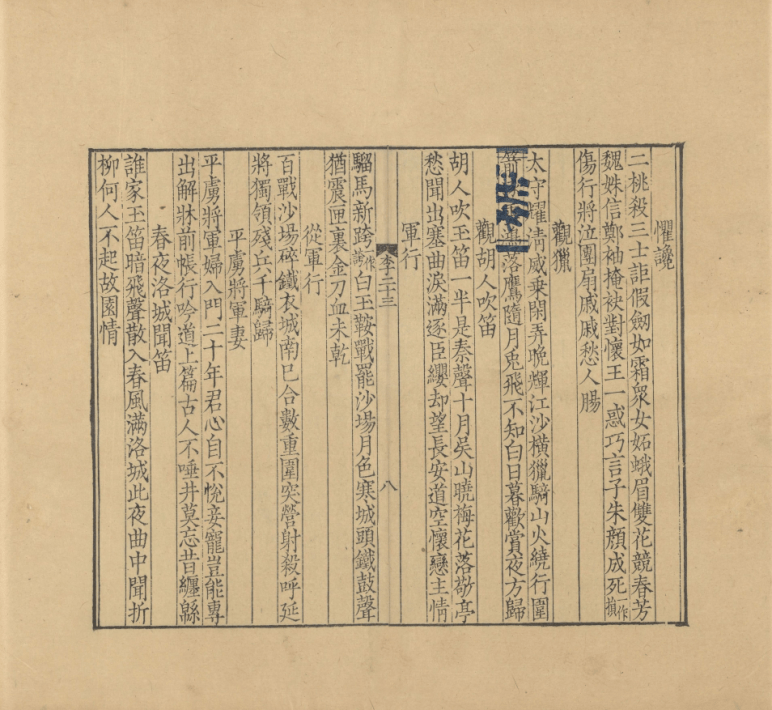 懼讒
二桃殺三士詎假劒如霜衆女妬蛾眉雙花競春芳
魏姝信鄭袖掩袂對懷王一惑巧言子朱顔成死一作損
傷行將泣團扇戚戚愁人腸
觀獵
太守耀清威乗閑弄晚輝江沙橫獵騎山火繞行圍
箭落鷹隨月兎飛不知白日暮歡賞夜方歸
觀胡人吹笛
胡人吹玉笛一半是秦聲十月吳山曉梅花落敬亭
愁聞出塞曲淚滿逐臣纓却望長安道空懷戀主情
軍行
騮馬新跨白玉鞍戰罷沙場月色寒城頭鐵鼓聲
猶震匣裏金刀血未乾
從軍行
百戰沙場碎鐵衣城南巳合數重圍突營射殺呼延
將獨領殘兵千騎歸
平虜將軍妻
平虜將軍婦入門二十年君心自不恱妾寵豈能專
出解牀前帳行吟道上篇古人不唾井莫忘昔纏緜
春夜洛城聞笛
誰家玉笛暗飛聲散入春風滿洛城此夜曲中聞折
柳何人不起故園情
李二十三
八